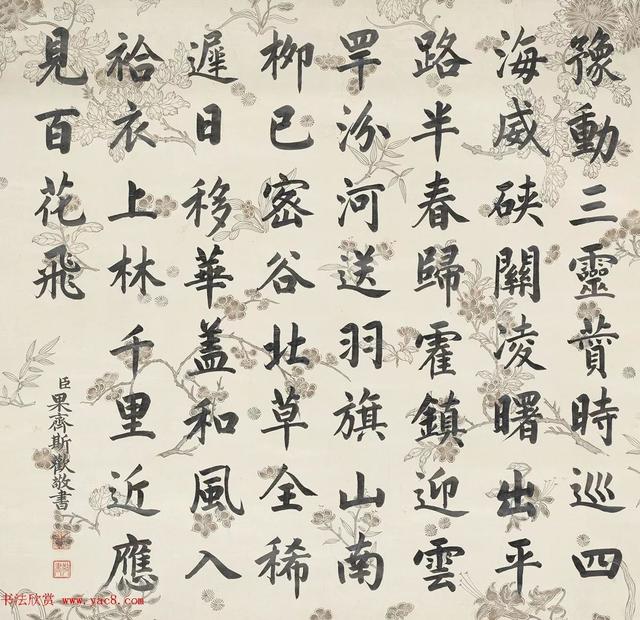 豫動三靈賛時巡四
海威硤關凌曙出平
路半春歸霍鎮迎雲
罕汾河送羽旗山南
柳已密谷北草全稀
遲日移華蓋和風入
袷衣上林千里近應
見百花飛
臣果齊斯歡敬書
书法欣赏 www.yac8.com